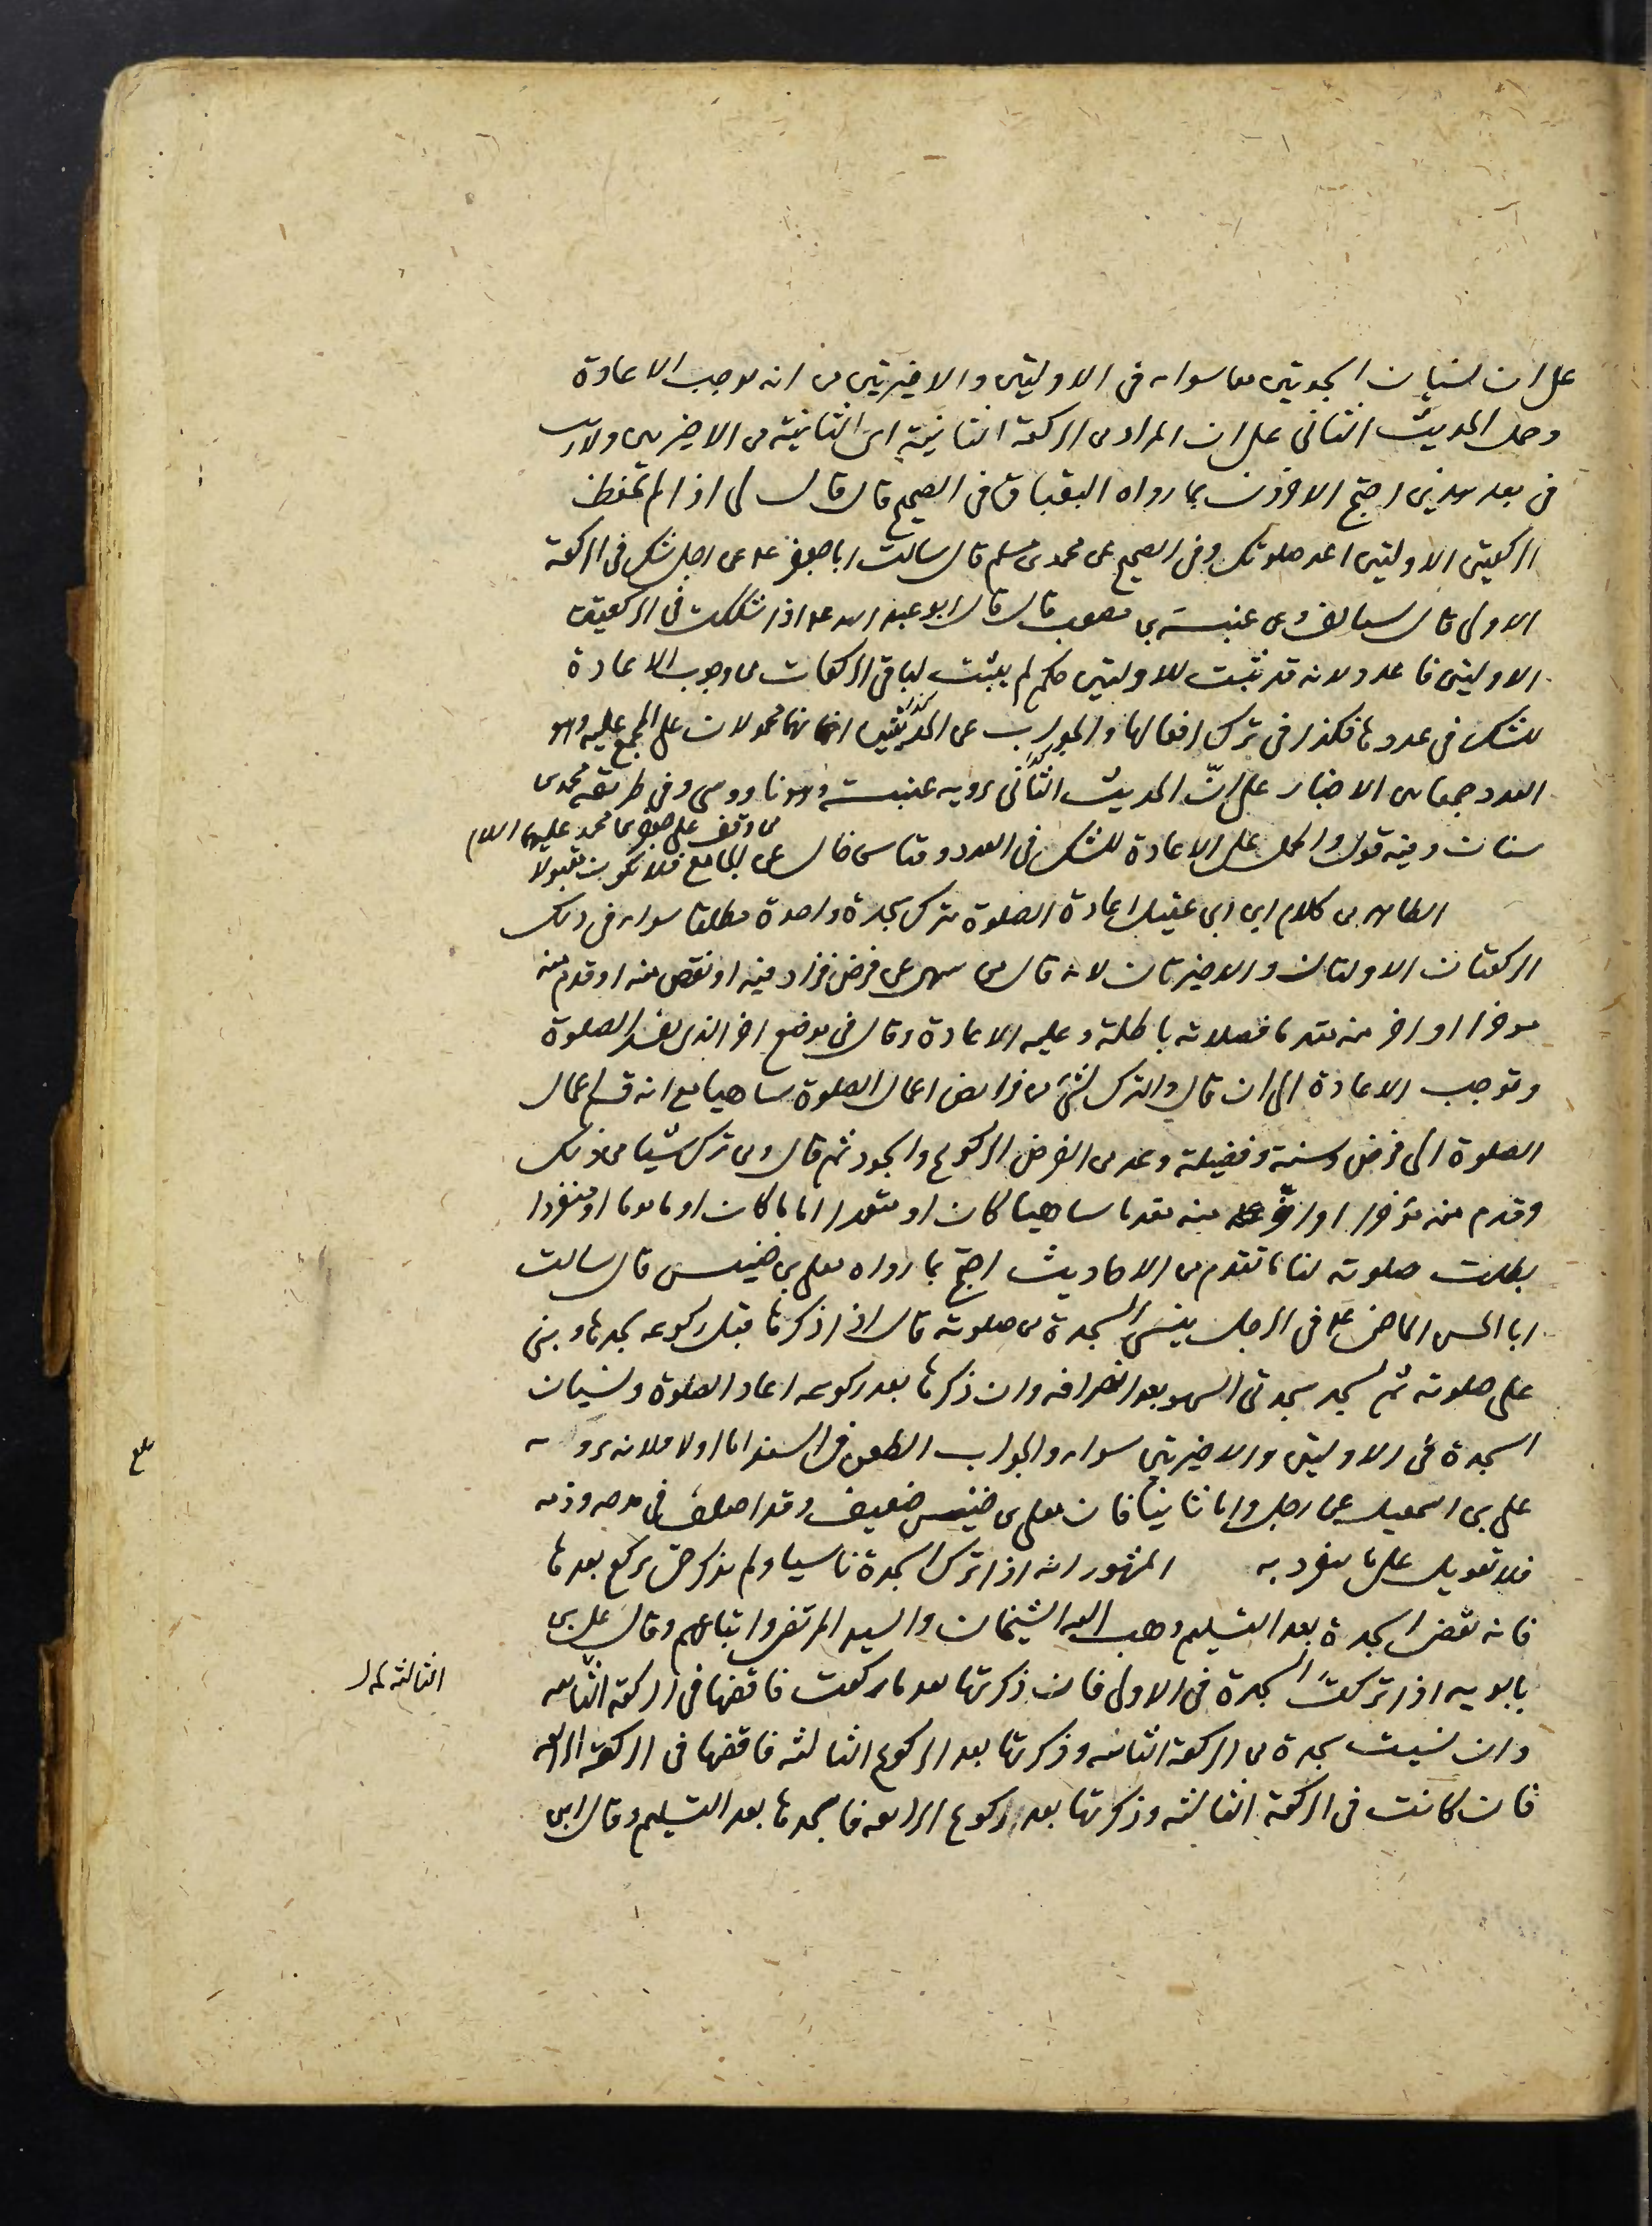 على ان نسيان السجدتين معا سواء فى الاوليتين والاخيرتين من انه يوجب الاعادة
وحمل الحديث الثانى على ان المراد من الركعة الثانية اى الثانية من الاخيرتين ولا ريب
فى بعد هذين احتج الاخرون بما رواه البقباق فى الصحيح قال قال لى اذا لم تحفظ
الركعتين الاوليتين اعد صلوتك وفى الصحيح عن محمد بن مسلم قال سالت ابا جعفر ع عن رجل شك فى الركعة
الاولى قال يستانف وعن عنبسة بن مصعب قال قال ابو عبد الله ع اذا شككت فى الركعتين
الاوليتين فاعد ولانه قد ثبت للاوليتين حكم لم يثبت لباقى الركعات من وجوب الاعادة
للشك فى عددها فكذا فى ترك افعالها والجواب عن الحديثين انهما محمولان على المجمع عليه وهو
العدد جمعا بين الاخبار على انّ الحديث الثانى يرويه عنبسة وهو ناووسى وفى طريقه محمد بن
سنان وفيه قول والحمل على الاعادة للشك فى العدد قياس خال عن الجامع فلا يكون مقبولا
من وقف على جعفر بن محمد عليهما السلام
الظاهر من كلام ابن ابى عقيل اعادة الصلوة بترك سجدة واحدة مطلقا سواء فى ذلك
الركعتان الاوليتان والاخيرتان لانه قال من سهى عن فرض فزاد فيه او نقص منه او قدم منه
موخرا او اخر منه مقدما فصلاته باطلة وعليه الاعادة وقال فى موضع اخر الذى يفسد الصلوة
وتوجب الاعادة الى ان قال والترك لشئ من فرايض اعمال الصلوة ساهيا مع انه قسم اعمال
الصلوة الى فرض وسنة وفضيلة وعد من الفرض الركوع والسجود ثم قال ومن ترك شيئا من ذلك
وقدم منه مؤخرا او اخّر منه مقدما ساهيا كان او متعمدا اماما كان او ماموما او منفردا
بطلت صلوته لنا ما تقدم من الاحاديث احتج بما رواه معلى بن خنيس قال سالت
ابا الحسن الماضى ع فى الرجل ينسى السجدة من صلوته قال اذا ذكرها قبل ركوعه سجدها وبنى
على صلوته ثم يسجد سجدتى السهو بعد انصرافه وان ذكرها بعد ركوعه اعاد الصلوة ونسيان
السجدة فى الاوليتين والاخيرتين سواء والجواب الطعن فى السند اما اولا فلانه يرويه
على بن اسمعيل عن رجل واما ثانيا فان معلى بن خنيس ضعيف وقد اختلف فى مدحه وذمه
فلا تعويل على ما ينفرد به المشهور انه اذا ترك السجدة ناسيا ولم يذكر حتى يركع بعدها
فانه يقضى السجدة بعد التسليم ذهب اليه الشيخان والسيد المرتضى واتباعهم وقال على بن
بابويه اذا تركت السجدة فى الاولى فان ذكرتها بعد ما ركعت فاقضها فى الركعة الثالثة
وان نسيت سجدة من الركعة الثانية وذكرتها بعد الركوع الثالثة فاقضها فى الركعة الرابعة
فان كانت فى الركعة الثالثة وذكرتها بعد ركوع الرابعة فاسجدها بعد التسليم وقال ابن